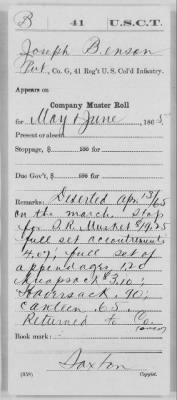 B | 41 | U.S.C.T.
Joseph Benson
Pvt., Co. G, 41 Reg't U. S. Col'd Infantry.
Appears on
Company Muster Roll
for May & June, 1865.
Present or absent
Stoppage, $ 100 for
Due Gov't, $ 100 for
Remarks: Deserted Apr 13/65
on the march. Stop
for S.R. Musket $19.25
full set accoutrements
4.07; full set of
appendages 1.20
knapsack $3.10;
Haversack .90;
canteen .65.
Returned to Co.
(over)
Book mark:
Saxton
(858) Copyist.